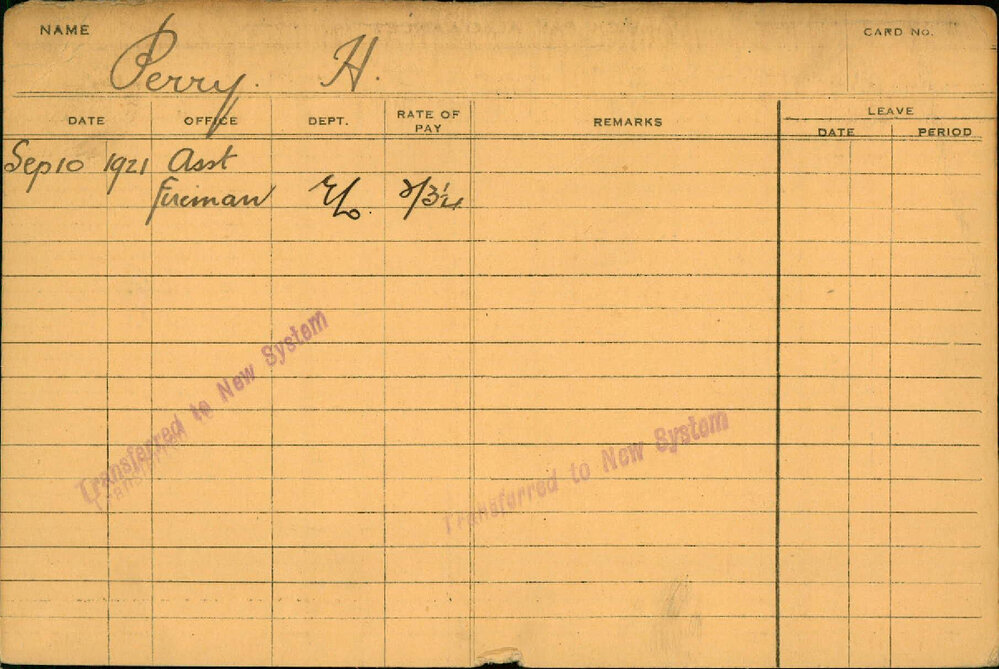 NAME Perry. H. CARD NO.
DATE OFFICE DEPT. RATE OF PAY REMARKS LEAVE
DATE PERIOD
Sep 10 1921 Asst
Fireman
Transferred to New System
Transferred to New System